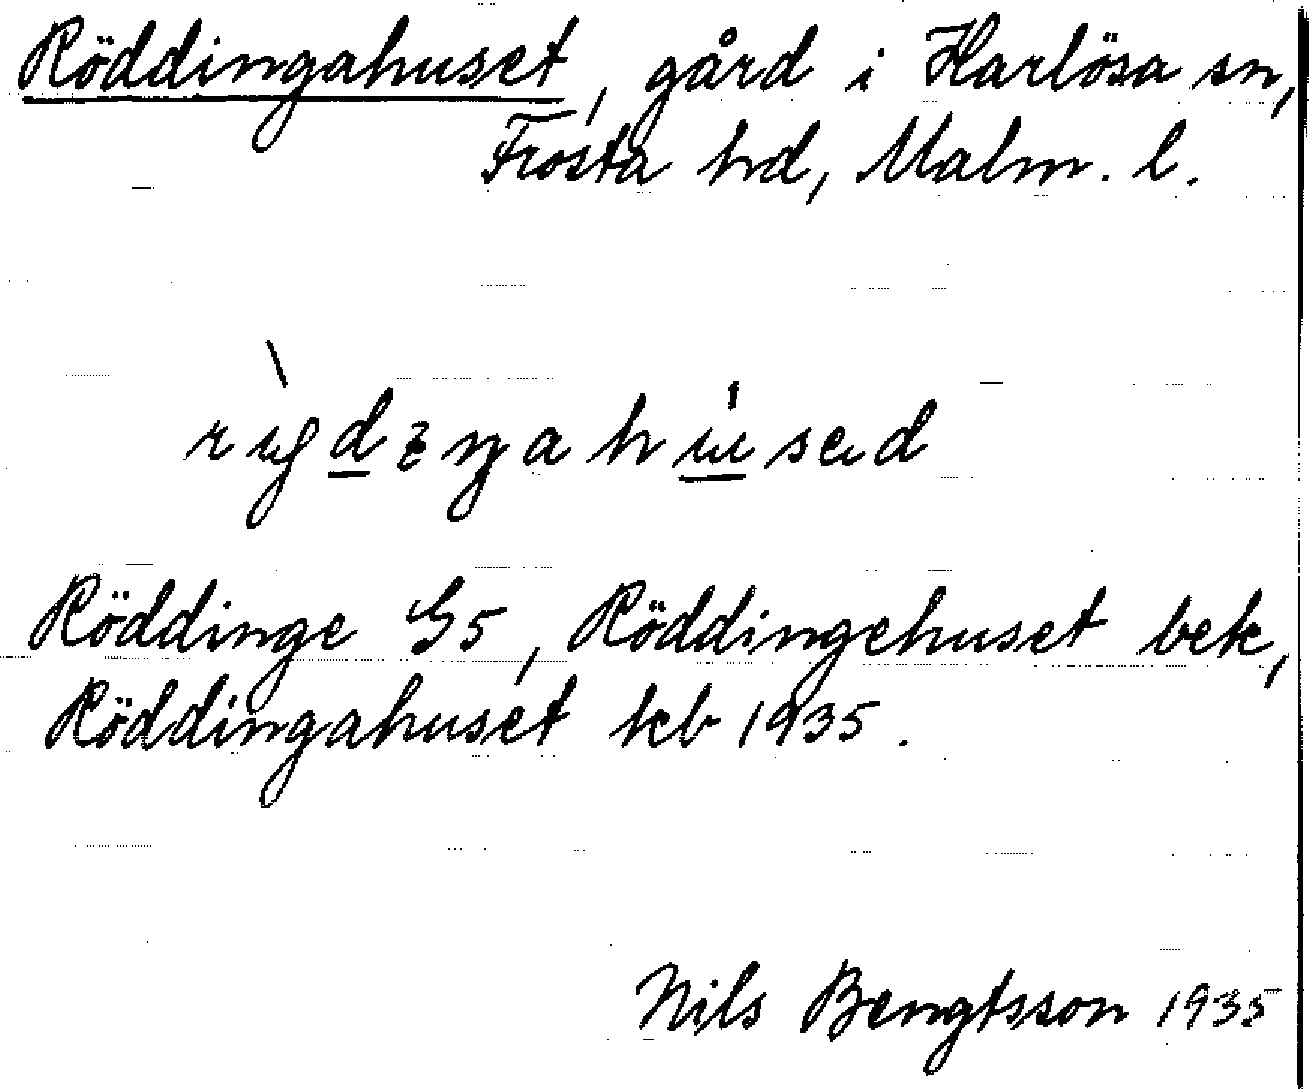 Röddingahuset, gård i Harlösa sn,
Frosta hd, Malm. l.
Röddinge G5, Röddingehuset bek,
Röddingahuset keb 1935.
Nils Bengtsson 1935